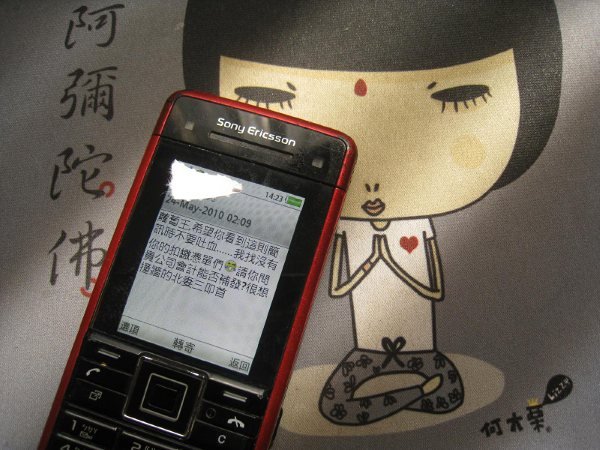 阿彌陀佛
Sony Ericsson
14:23
24-May-2010 02:09
王,希望你看到這則簡
訊時不要吐血......我找沒有
你的扣繳憑單們 請你問
貴公司會計能否補發?很想
遠端的北委三叩首
選項
轉寄
返回
C
1
2
3
何木栗